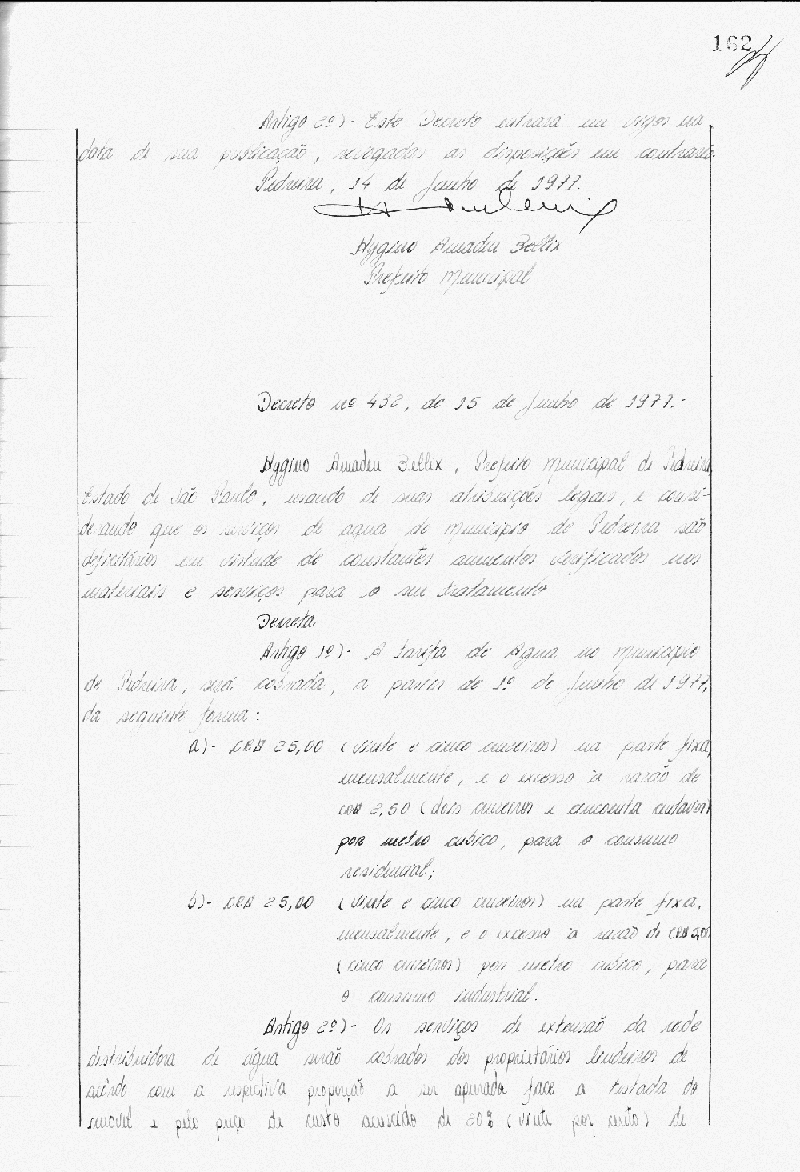 162
Artigo 2º)- Este Decreto entrará em vigor na
data de sua publicação, revogadas as disposições em contrário.
Pedreira, 14 de Junho de 1977.
Hygino Amadeu Bellix
Prefeito Municipal
Decreto nº 432, de 15 de Junho de 1977.-
Hygino Amadeu Bellix, Prefeito Municipal de Pedreira,
Estado de São Paulo, usando de suas atribuições legais, e consi-
derando que os serviços de água do município de Pedreira são
deficitários em virtude de constantes aumentos verificados nos
materiais e serviços para o seu tratamento
Decreta
Artigo 1º)- A Tarifa de Água no Município
de Pedreira, será cobrada, a partir de 1º de Junho de 1977,
da seguinte forma:
a)- CR$ 25,00 (vinte e cinco cruzeiros) na parte fixa,
mensalmente, e o excesso à razão de
CR$ 2,50 (dois cruzeiros e cincoenta centavos)
por metro cúbico, para o consumo
residencial;
b)- CR$ 25,00 (vinte e cinco cruzeiros) na parte fixa,
mensalmente, e o excesso à razão de CR$ 5,00
(cinco cruzeiros) por metro cúbico, para
o consumo industrial.
Artigo 2º)- Os serviços de extensão da rede
distribuidora de água serão cobrados dos proprietários lindeiros de
acôrdo com a respectiva proporção a ser apurada face a testada do
imóvel e pelo preço de custo acrescido de 20% (vinte por cento) de